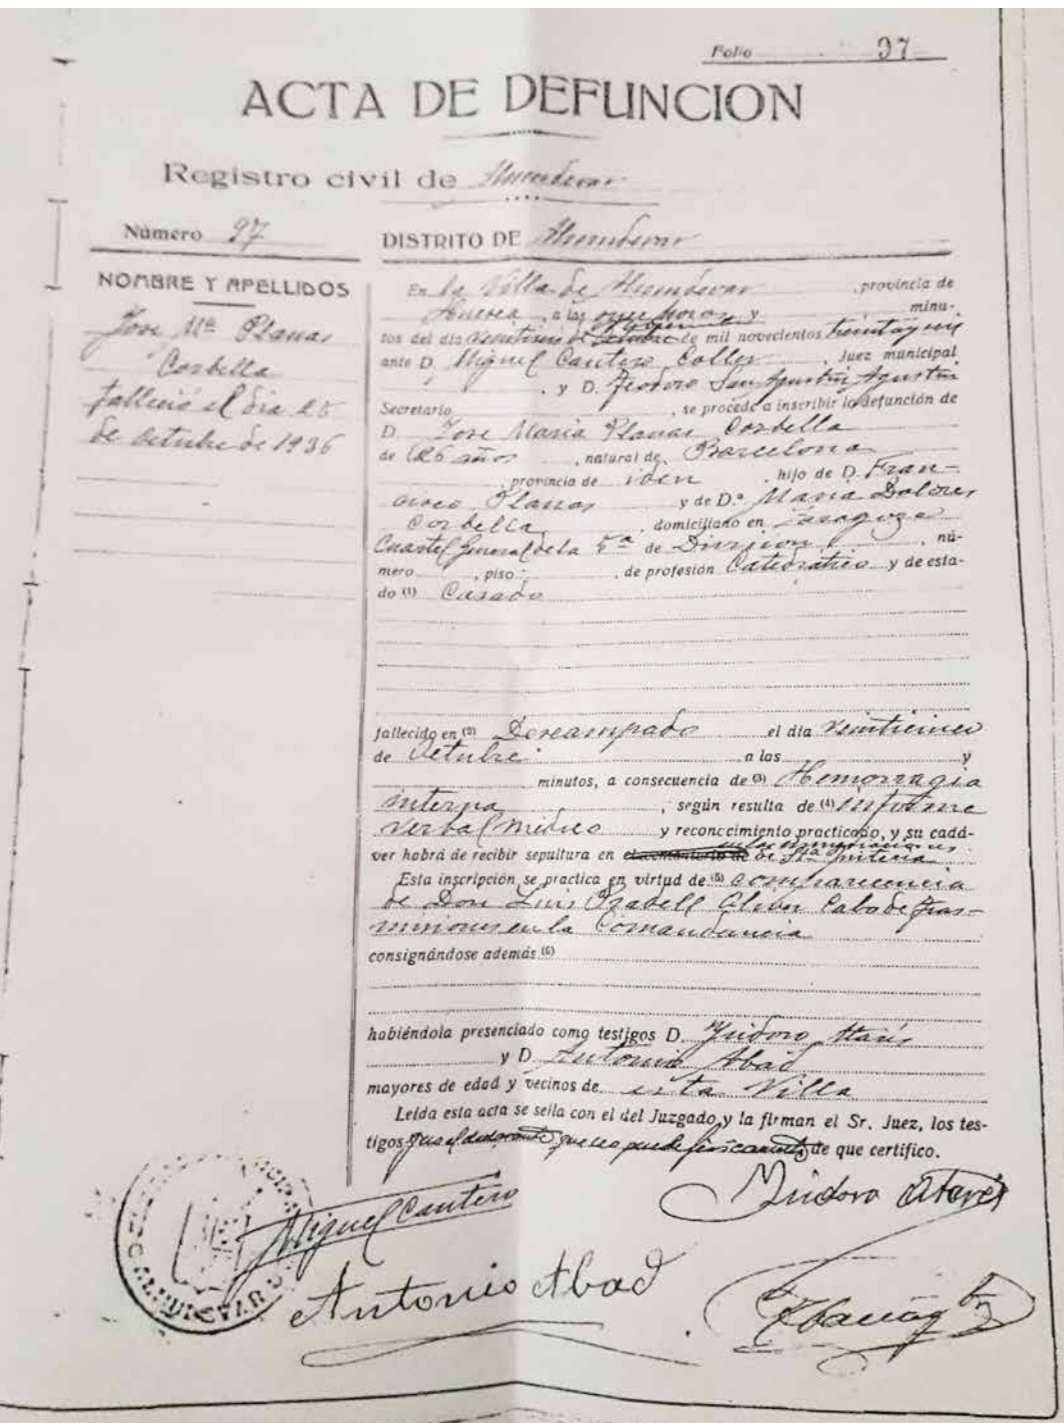 Folio 97
ACTA DE DEFUNCION
Registro civil de Almudevar
Número 97
DISTRITO DE Almudevar
NOMBRE Y APELLIDOS
Jose Mª Planas
Corbella
falleció el dia 25
de octubre de 1936
En la Villa de Almudévar, provincia de
Huesca, a las once horas y minu-
tos del día de mil novecientos treinta y seis
ante D. Miguel Cantero Coller, Juez municipal
y D. Teodoro San Agustín Agustín
Secretario, se procede a inscribir la defunción de
D. Jose Maria Planas Corbella
de 26 años, natural de Barcelona
provincia de iden, hijo de D. Fran-
cisco Planas y de D.ª Maria Dolores
Corbella, domiciliado en Zaragoza
Cuartel General de la 5ª de Division, nú-
mero, piso, de profesión Catedratico y de esta-
do (1) Casado
fallecido en (2) Descampado el día veinticinco
de Octubre a las y
minutos, a consecuencia de (3) Hemorragia
interna, según resulta de (4) informe
verbal médico y reconocimiento practicado, y su cadá-
ver habrá de recibir sepultura en el cementerio de de Stª Quiteria
Esta inscripción se practica en virtud de (5) comparecencia
de Don Luis Oliver Cabo de Tras-
misiones en la Comandancia
consignándose además (6)
habiéndola presenciado como testigos D. Ysidoro Atarés
y D. Antonio Abad
mayores de edad y vecinos de esta Villa
Leída esta acta se sella con el del Juzgado y la firman el Sr. Juez, los tes-
tigos de que certifico.
Miguel Cantero
Ysidoro Atarés
Antonio Abad